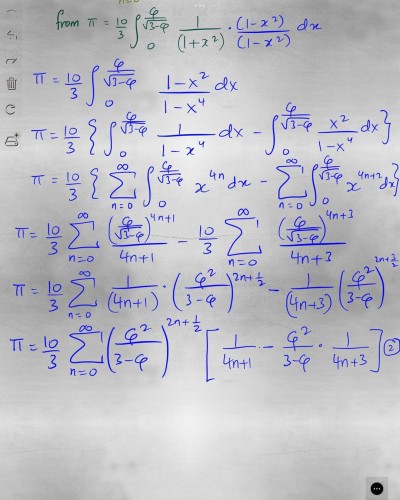 from π = 10/3 ∫₀^(φ/√(3-φ)) 1/(1+x²) · (1-x²)/(1-x²) dx
π = 10/3 ∫₀^(φ/√(3-φ)) (1-x²)/(1-x⁴) dx
π = 10/3 { ∫₀^(φ/√(3-φ)) 1/(1-x⁴) dx - ∫₀^(φ/√(3-φ)) x²/(1-x⁴) dx }
π = 10/3 { ∑_(n=0)^∞ ∫₀^(φ/√(3-φ)) x^(4n) dx - ∑_(n=0)^∞ ∫₀^(φ/√(3-φ)) x^(4n+2) dx }
π = 10/3 ∑_(n=0)^∞ (φ/√(3-φ))^(4n+1)/(4n+1) - 10/3 ∑_(n=0)^∞ (φ/√(3-φ))^(4n+3)/(4n+3)
π = 10/3 ∑_(n=0)^∞ 1/(4n+1) · (φ²/(3-φ))^(2n+1/2) - 1/(4n+3) (φ²/(3-φ))^(2n+3/2)
π = 10/3 ∑_(n=0)^∞ (φ²/(3-φ))^(2n+1/2) [ 1/(4n+1) - φ²/(3-φ) · 1/(4n+3) ] ②